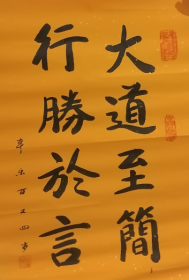 大道至簡
行勝於言